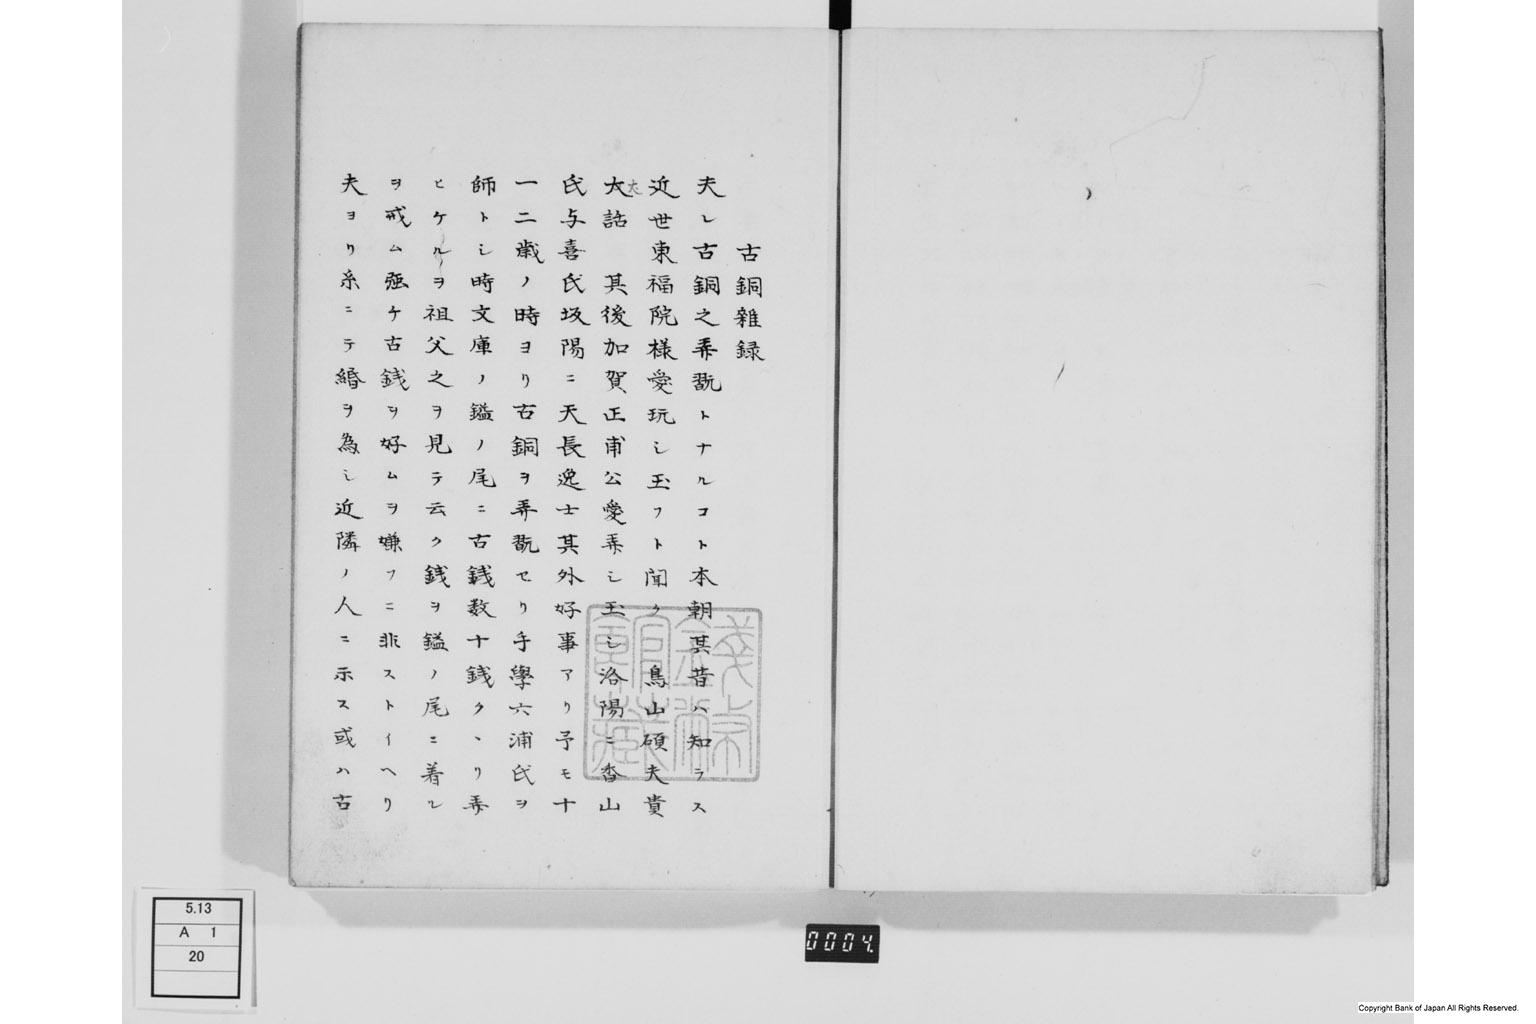 古銅雜録
夫レ古銅之弄翫トナルコト本朝其昔ハ知ラス
近世東福院様愛玩シ玉フト聞ク 鳥山碩夫貴
大話 其後加賀正甫公愛弄シ玉シ洛陽ニ沓山
大
氏与喜氏坂陽ニ天長逸士其外好事アリ予モ十
一二歳ノ時ヨリ古銅ヲ弄翫セリ手學六浦氏ヲ
師トシ時文庫ノ鎰ノ尾ニ古銭数十銭クヽリ弄
ヒケルヲ祖父之ヲ見テ云ク銭ヲ鎰ノ尾ニ着ル
ヲ戒ム強ケ古銭ヲ好ムヲ嫌フニ非ストイヘリ
夫ヨリ糸ニテ緡ヲ為シ近隣ノ人ニ示ス或ハ古
錢幣館藏
5.13
A 1
20
0004
Copyright Bank of Japan All Rights Reserved.